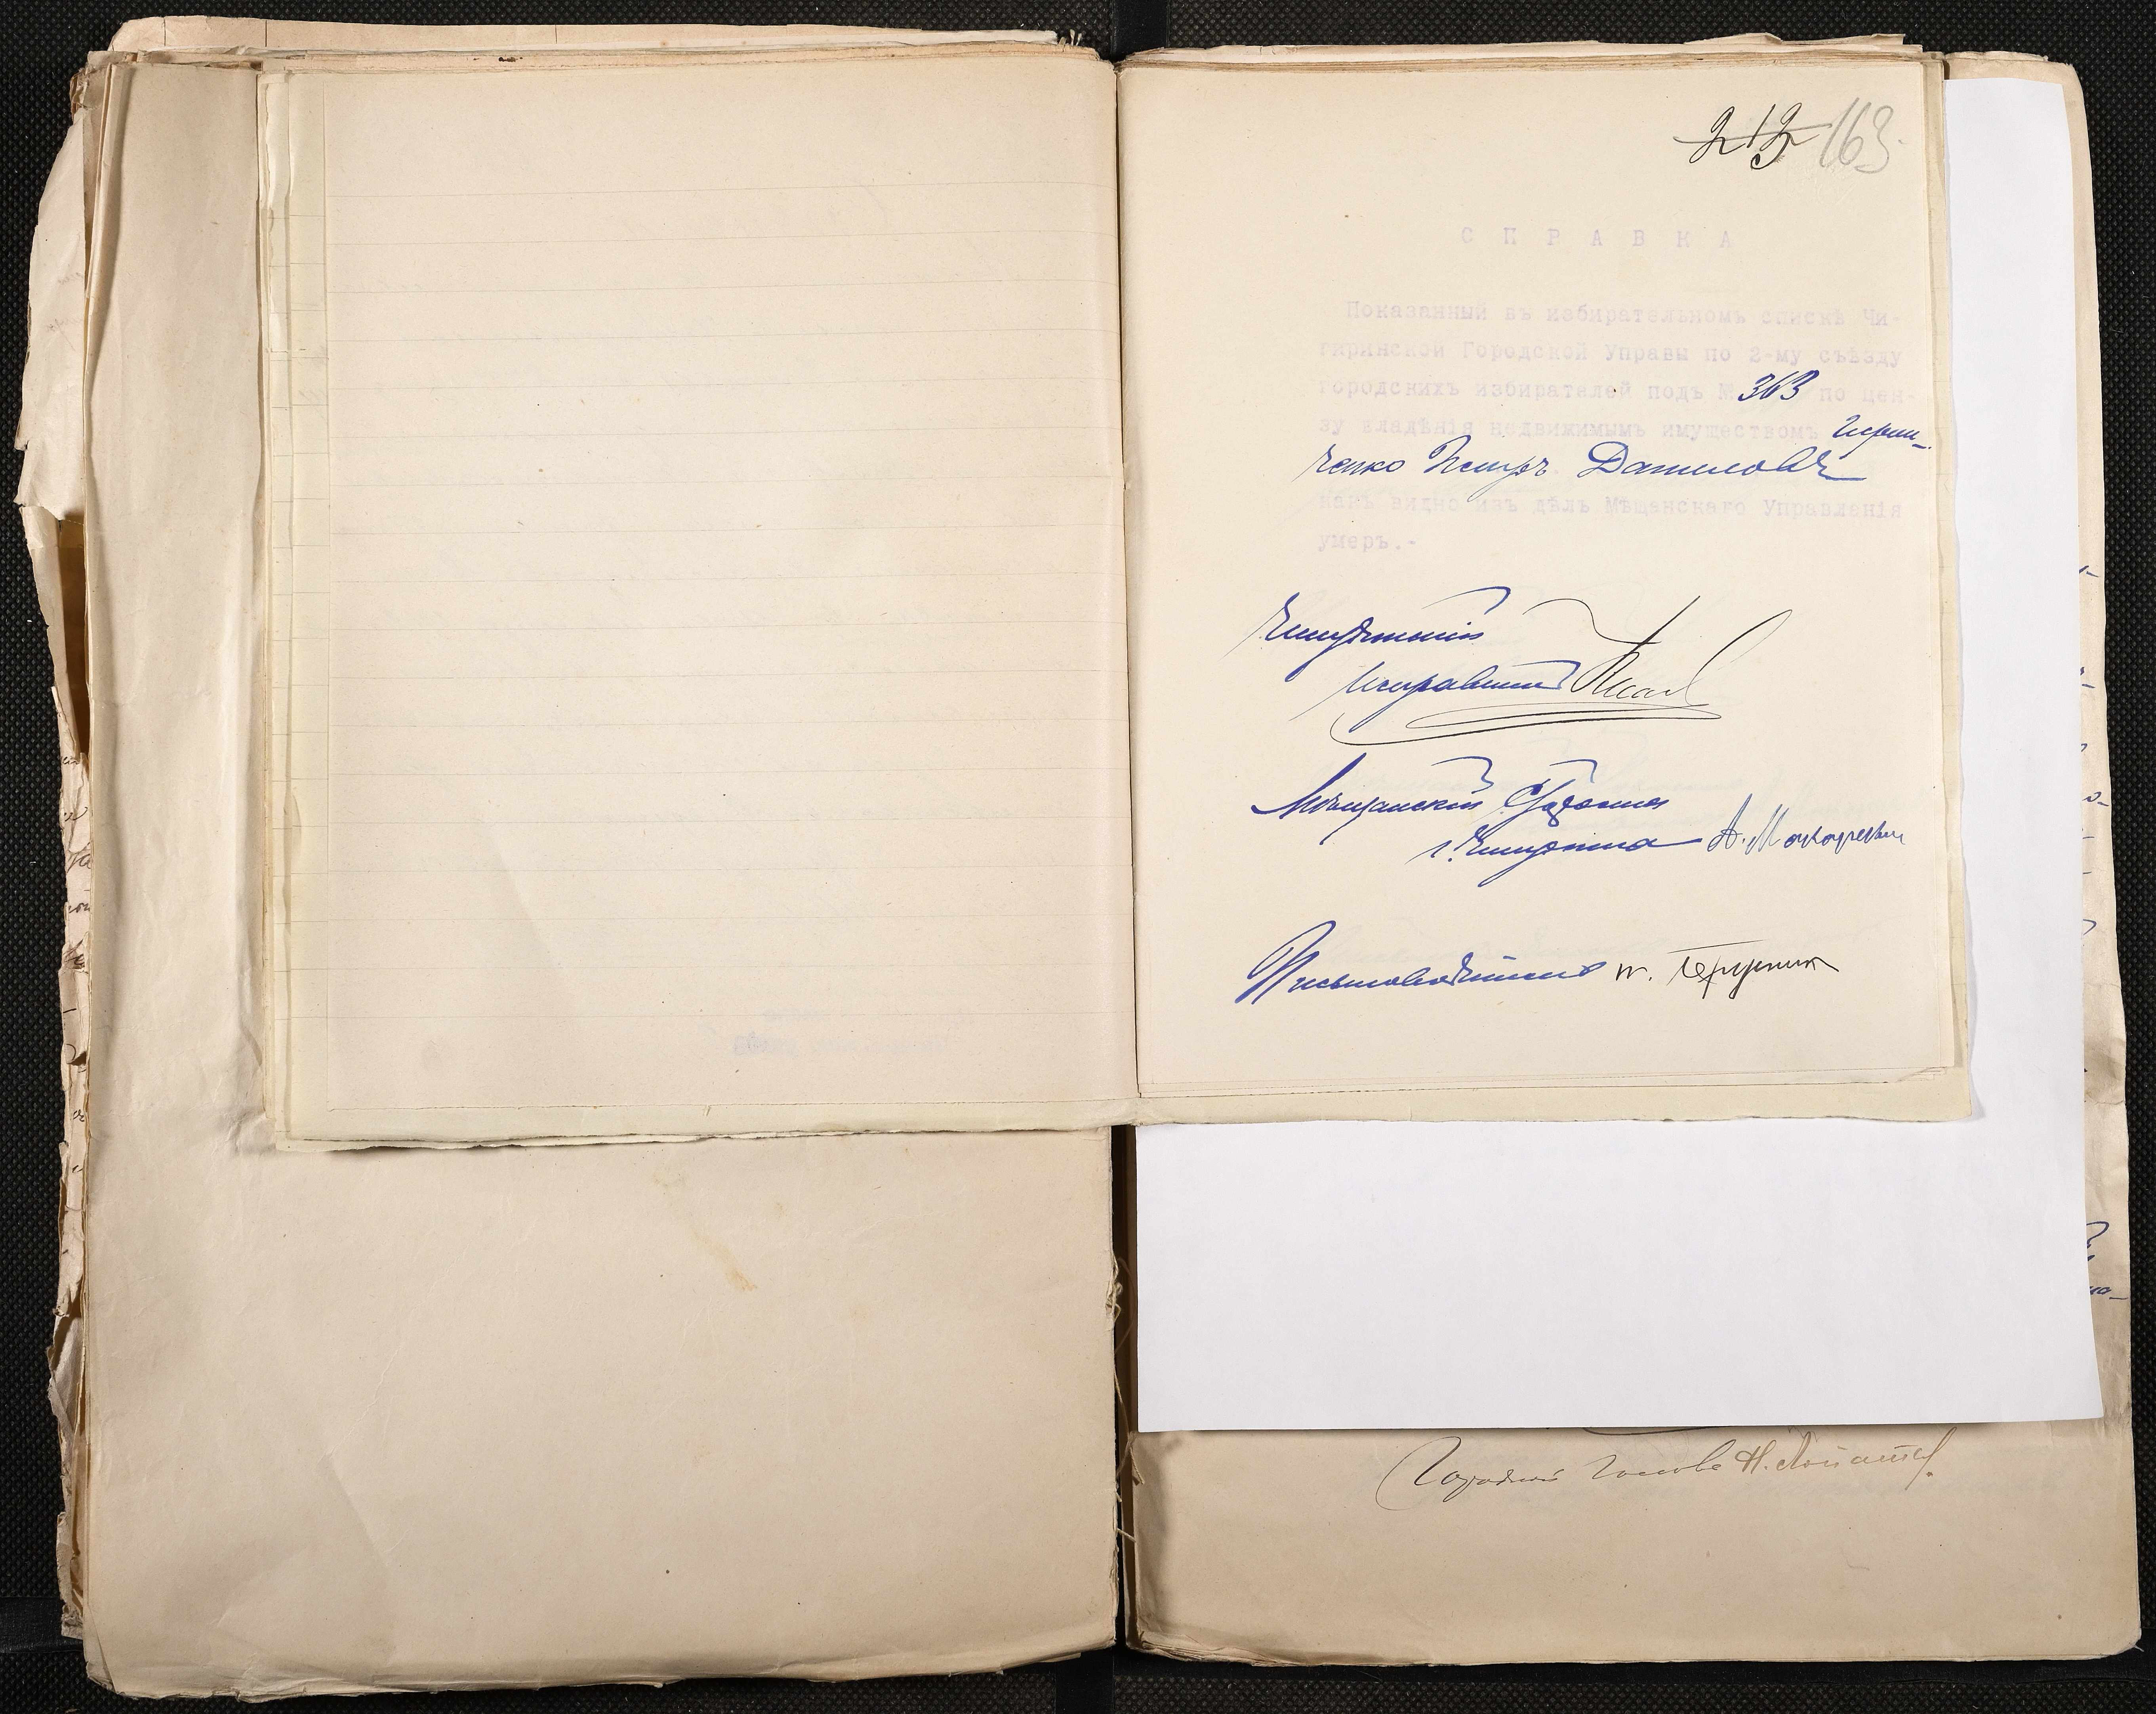 213 163
СПРАВКА
Показанный въ избирательномъ спискѣ Чи-
гиринской Городской Управы по 2-му съѣзду
городскихъ избирателей подъ № 363 по цен-
зу владѣнія недвижимымъ имуществомъ
ченко Петръ Даниловъ
какъ видно изъ дѣлъ Мѣщанскаго Управленія
умеръ.-
Чигиринскій
Исправникъ
Мѣщанскій Староста
г. Чигирина А. Макаревич
Письмоводитель
Городской Голова Н.